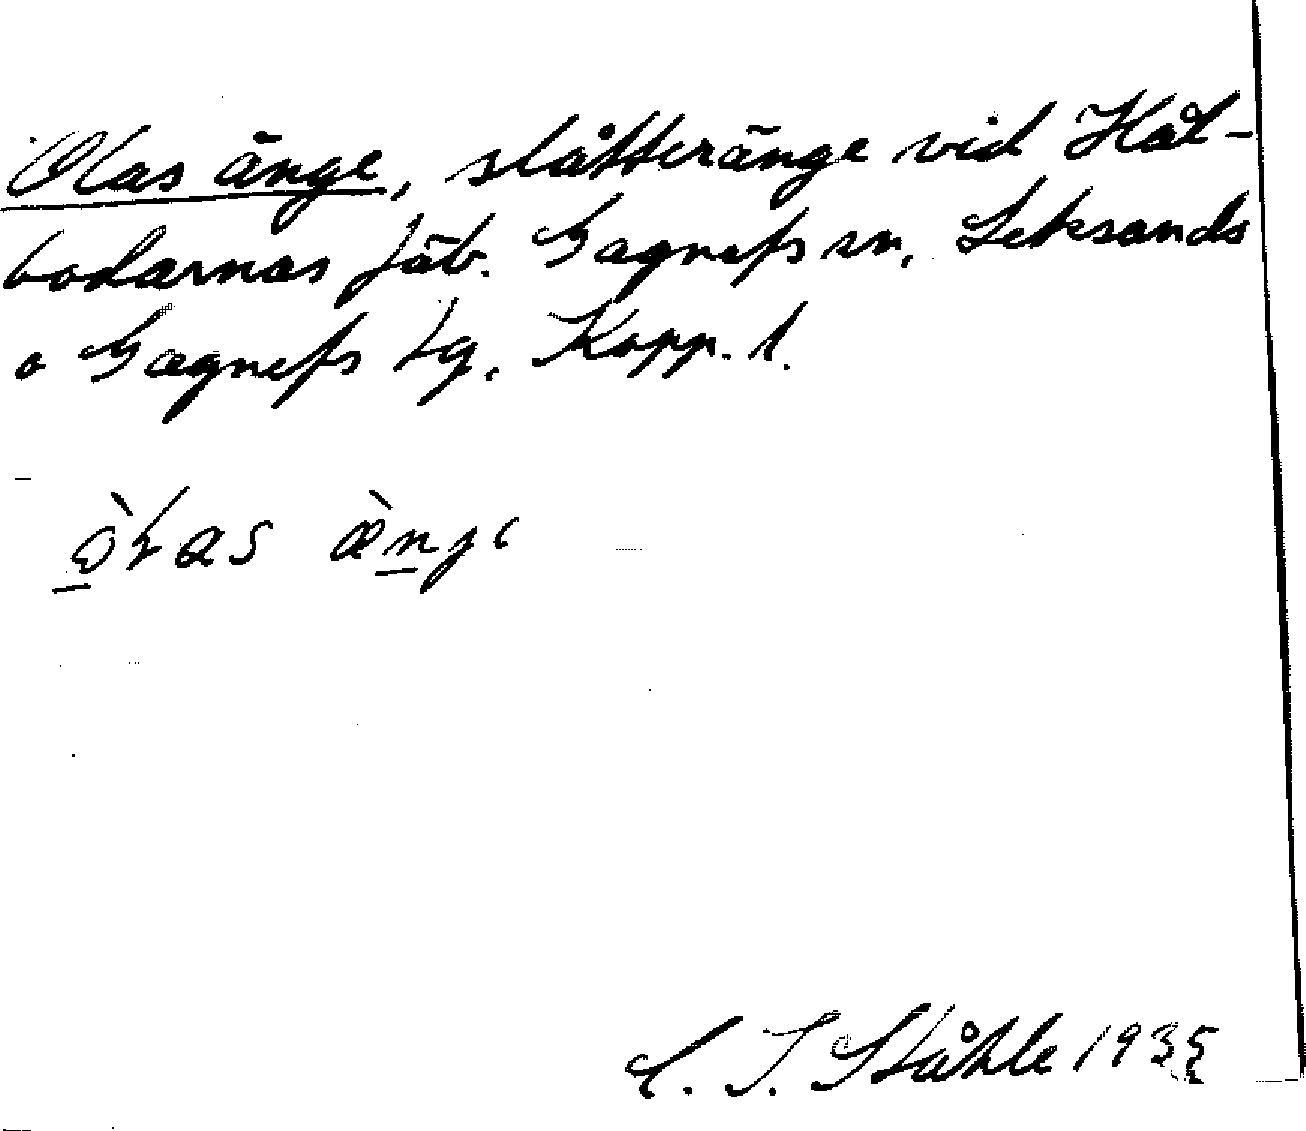 Olas änge, slåtteränge vid Hål-
bodarnas fäb. Gagnefs sn, Leksands
o Gagnefs tg, Kopp. l.
òłas æ̀nɟe
C. I. Ståhle 1935